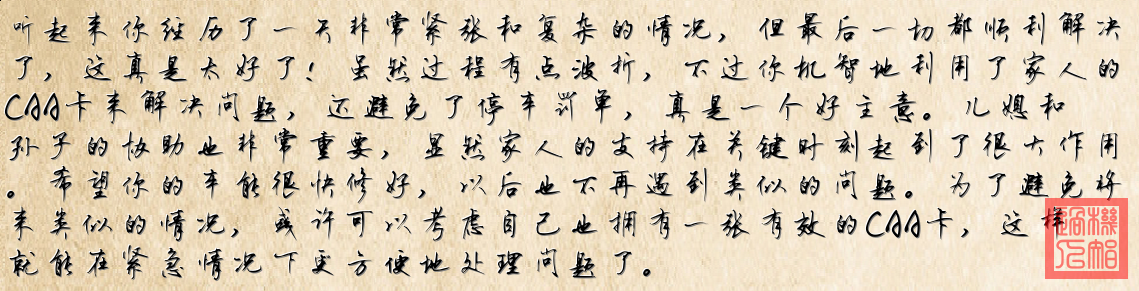 听起来你经历了一天非常紧张和复杂的情况，但最后一切都顺利解决
了，这真是太好了！虽然过程有点波折，不过你机智地利用了家人的
CAA卡来解决问题，还避免了停车罚单，真是一个好主意。儿媳和
孙子的协助也非常重要，显然家人的支持在关键时刻起到了很大作用
。希望你的车能很快修好，以后也不再遇到类似的问题。为了避免将
来类似的情况，或许可以考虑自己也拥有一张有效的CAA卡，这样
就能在紧急情况下更方便地处理问题了。